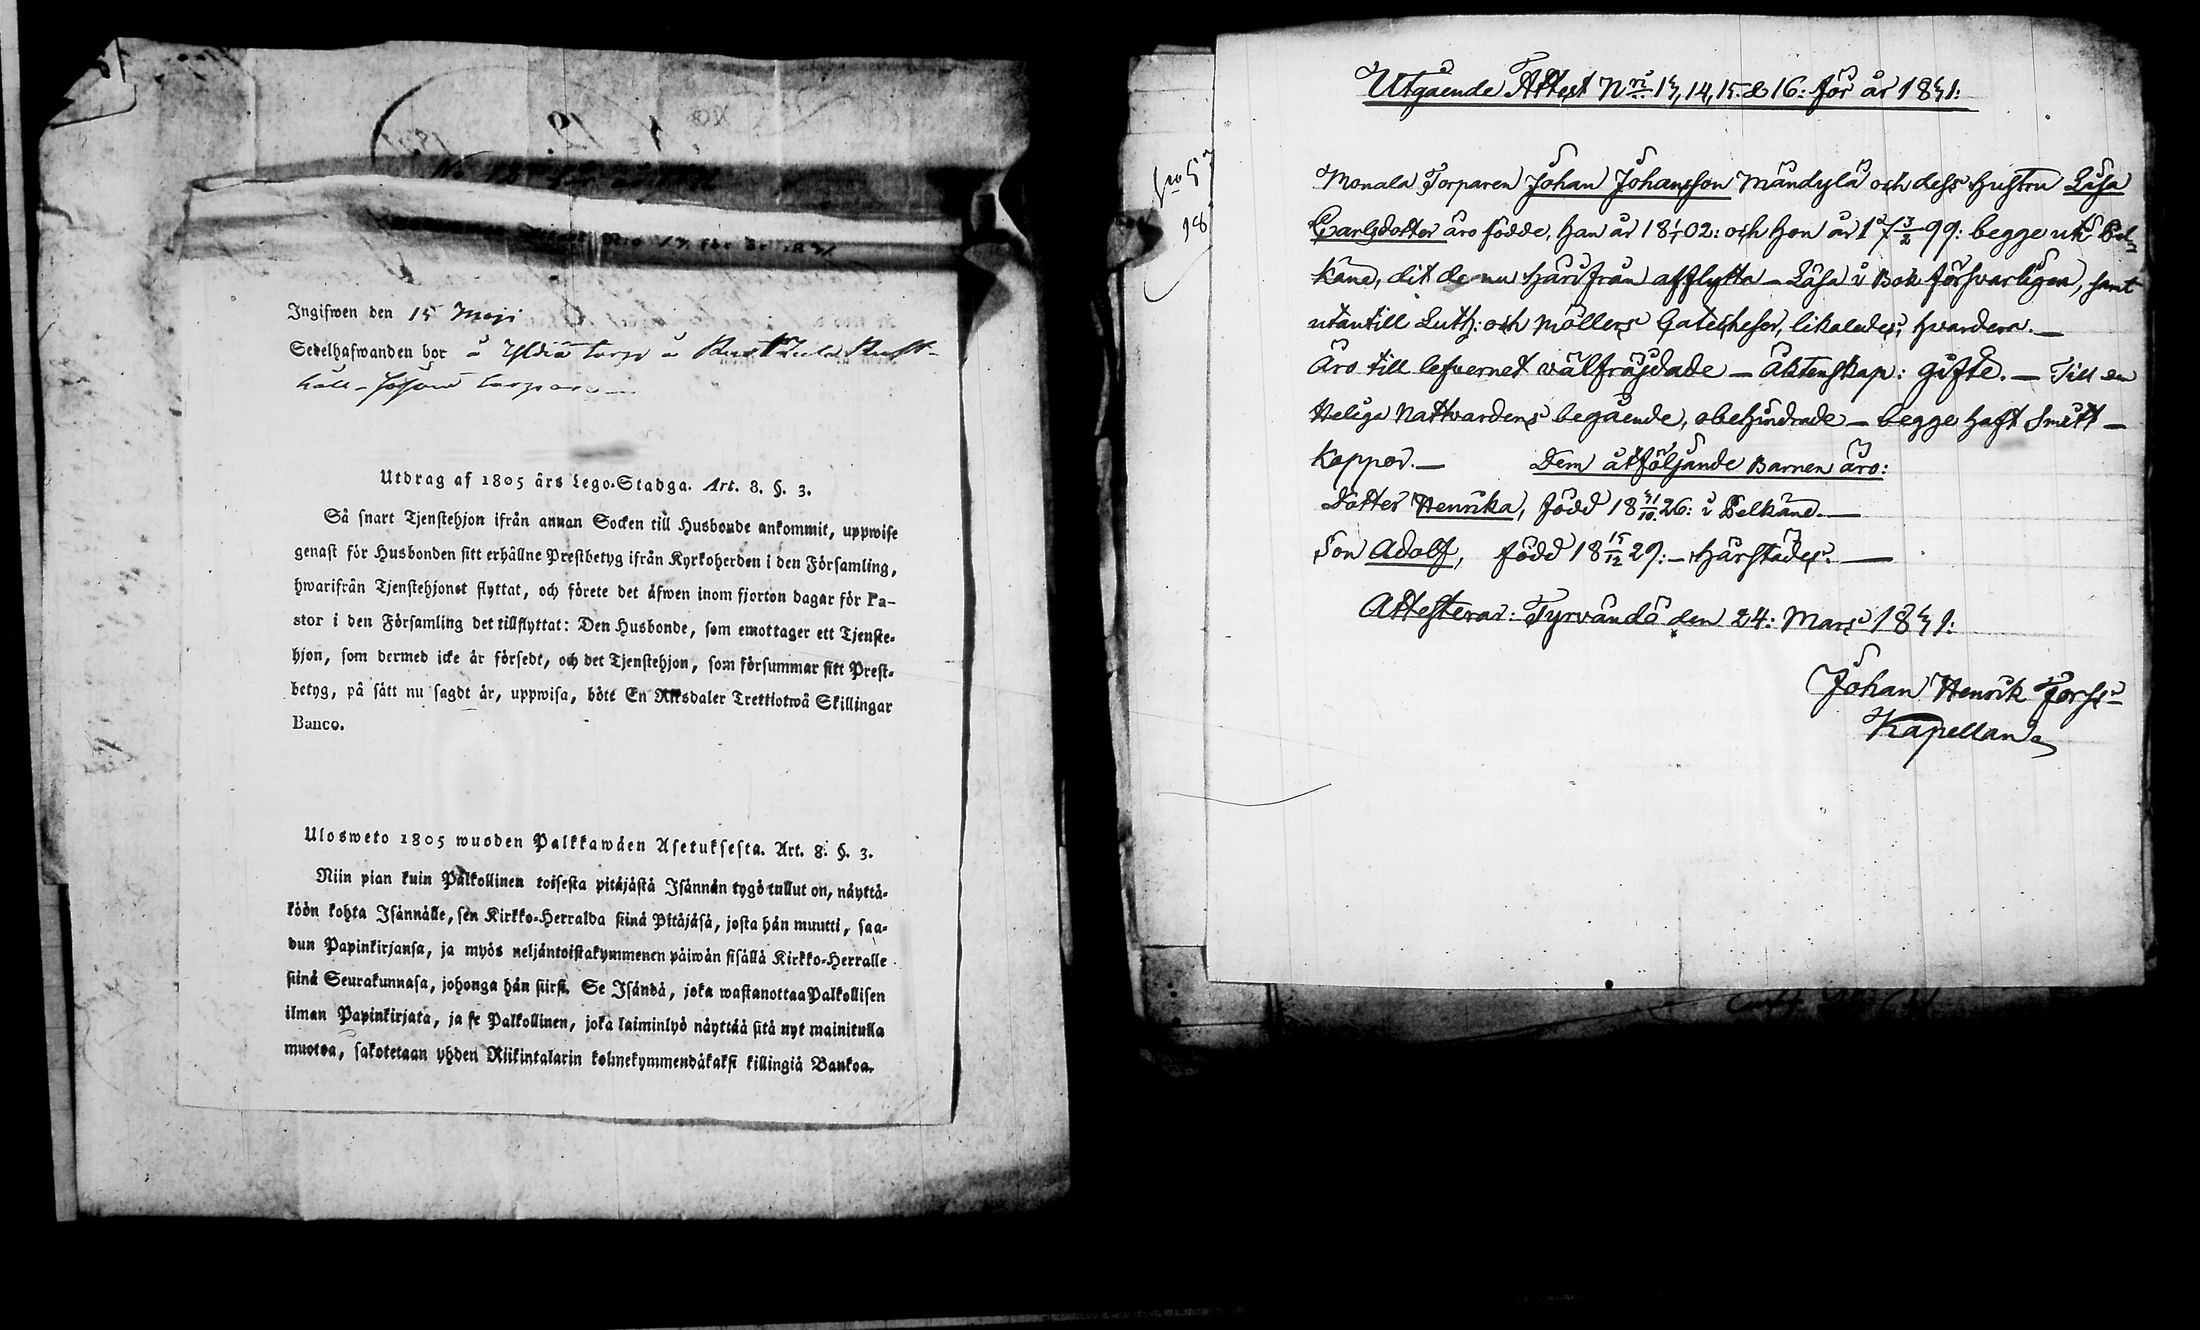 Ingifwen den 15 Maji
Sedelhafwanden bor å Yldiä torp
håll
Utdrag af 1805 års Lego-Stadga. Art. 8. §. 3.
Så snart Tjenstehjon ifrån annan Socken till Husbonde ankommit, uppwise
genast för Husbonden sitt erhållne Prestbetyg ifrån Kyrkoherden i den Församling,
hwarifrån Tjenstehjonet flyttat, och förete det äfwen inom fjorton dagar för Pa-
stor i den Församling det tillflyttat: Den Husbonde, som emottager ett Tjenste-
hjon, som dermed icke är försedt, och det Tjenstehjon, som försummar sitt Prest-
betyg, på sätt nu sagdt är, uppwisa, böte En Riksdaler Trettiotwå Skillingar
Banco.
Ulosweto 1805 wuoden Palkkawäen Asetuksesta. Art. 8. §. 3.
Niin pian kuin Palkollinen toisesta pitäjästä Isännän tygö tullut on, näyttä-
köön kohta Isännälle, sen Kirkko-Herralda siinä Pitäjäsä, josta hän muutti, saa-
dun Papinkirjansa, ja myös neljäntoistakymmenen päiwän sisällä Kirkko-Herralle
siinä Seurakunnasa, johonga hän siirsi. Se Isändä, joka wastanottaa Palkollisen
ilman Papinkirjata, ja se Palkollinen, joka laiminlyö näyttää sitä nyt mainitulla
muotoa, sakotetaan yhden Riikintalarin kolmekymmendäkaksi killingiä Bankoa.
Utgående Attest Nris 13, 14, 15. & 16: för år 1831:
Monala Torparen Johan Johansson Mändylä och dess Hustru Lisa
Carlsdotter äro födde, han år 18 1/1 02: och Hon år 17 3/2 99: begge uti Pel-
käne, dit de nu härifrån afflytta – Läsa i Bok försvarligen, samt
utantill Luth: och Möllers Cateches, likaledes, hvardera. –
Äro till lefvernet välfräjdade – Äktenskap: gifte. – Till den
Heliga Nattvardens begående, obehindrade – begge haft Smitt-
koppor. – Dem åtföljande Barnen äro:
Dotter Henrika, född 18 31/10 26: i Pelkäne. –
Son Adolf, född 18 15/12 29: – härstädes. –
Attesterar: Tyrvändö den 24: Mars 1831:
Johan Henrik Forss
Kapellan